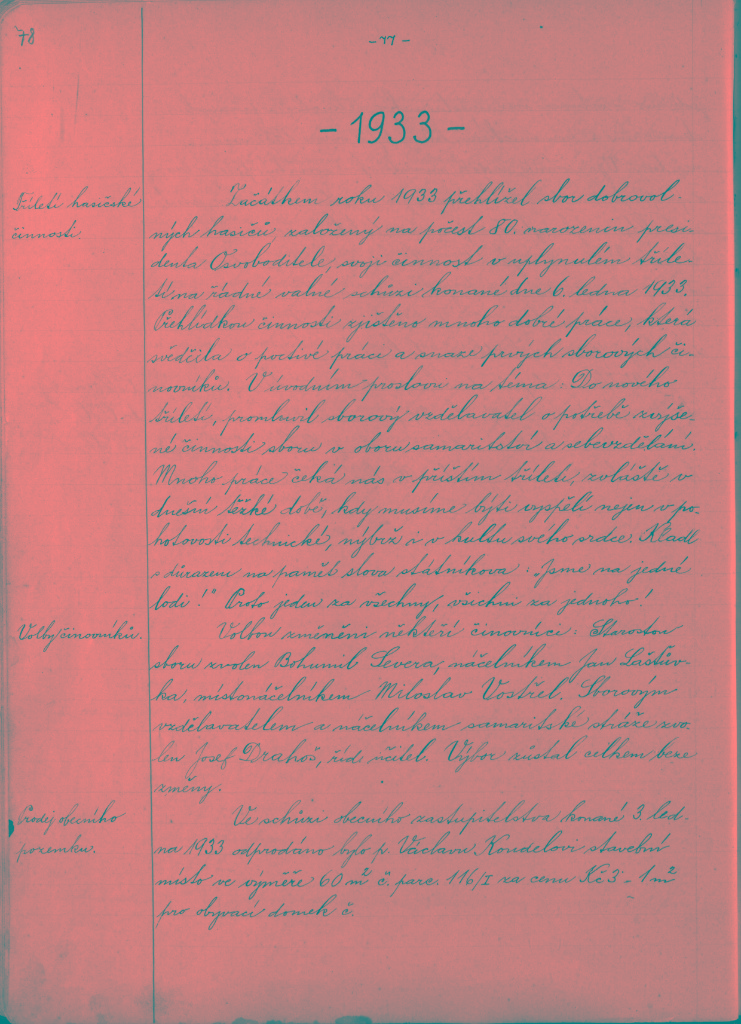 78
- 77 -
- 1933 -
Tříletí hasičské
činnosti.
Začátkem roku 1933 přehlížel sbor dobrovol-
ných hasičů, založený na počest 80. narozenin presi-
denta Osvoboditele, svoji činnost v uplynulém tříle-
tí na řádné valné schůzi konané dne 6. ledna 1933.
Přehlídkou činnosti zjištěno mnoho dobré práce, která
svědčila o poctivé práci a snaze prvých sborových či-
novníků. V úvodním proslovu na téma: Do nového
tříletí, promluvil sborový vzdělavatel o potřebě zvýše-
né činnosti sboru v oboru samaritství a sebevzdělání.
Mnoho práce čeká nás v příštím tříletí, zvláště v
dnešní těžké době, kdy musíme býti vyspělí nejen v po-
hotovosti technické, nýbrž i v kultu svého srdce. Kladl
s důrazem na paměť slova státníkova: „Jsme na jedné
lodi!" Proto jeden za všechny, všichni za jednoho!
Volby činovníků.
Volbou změněni někteří činovníci: Starostou
sboru zvolen Bohumil Severa, náčelníkem Jan Laštův-
ka, místonáčelníkem Miloslav Vostřel. Sborovým
vzdělavatelem a náčelníkem samaritské stráže zvo-
len Josef Drahoš, říd. učitel. Výbor zůstal celkem beze
změny.
Prodej obecního
pozemku.
Ve schůzi obecního zastupitelstva konané 3. led-
na 1933 odprodáno bylo p. Václavu Koudelovi stavební
místo ve výměře 60 m² č. parc. 116/I za cenu Kč 3 - 1 m²
pro obývací domek č.